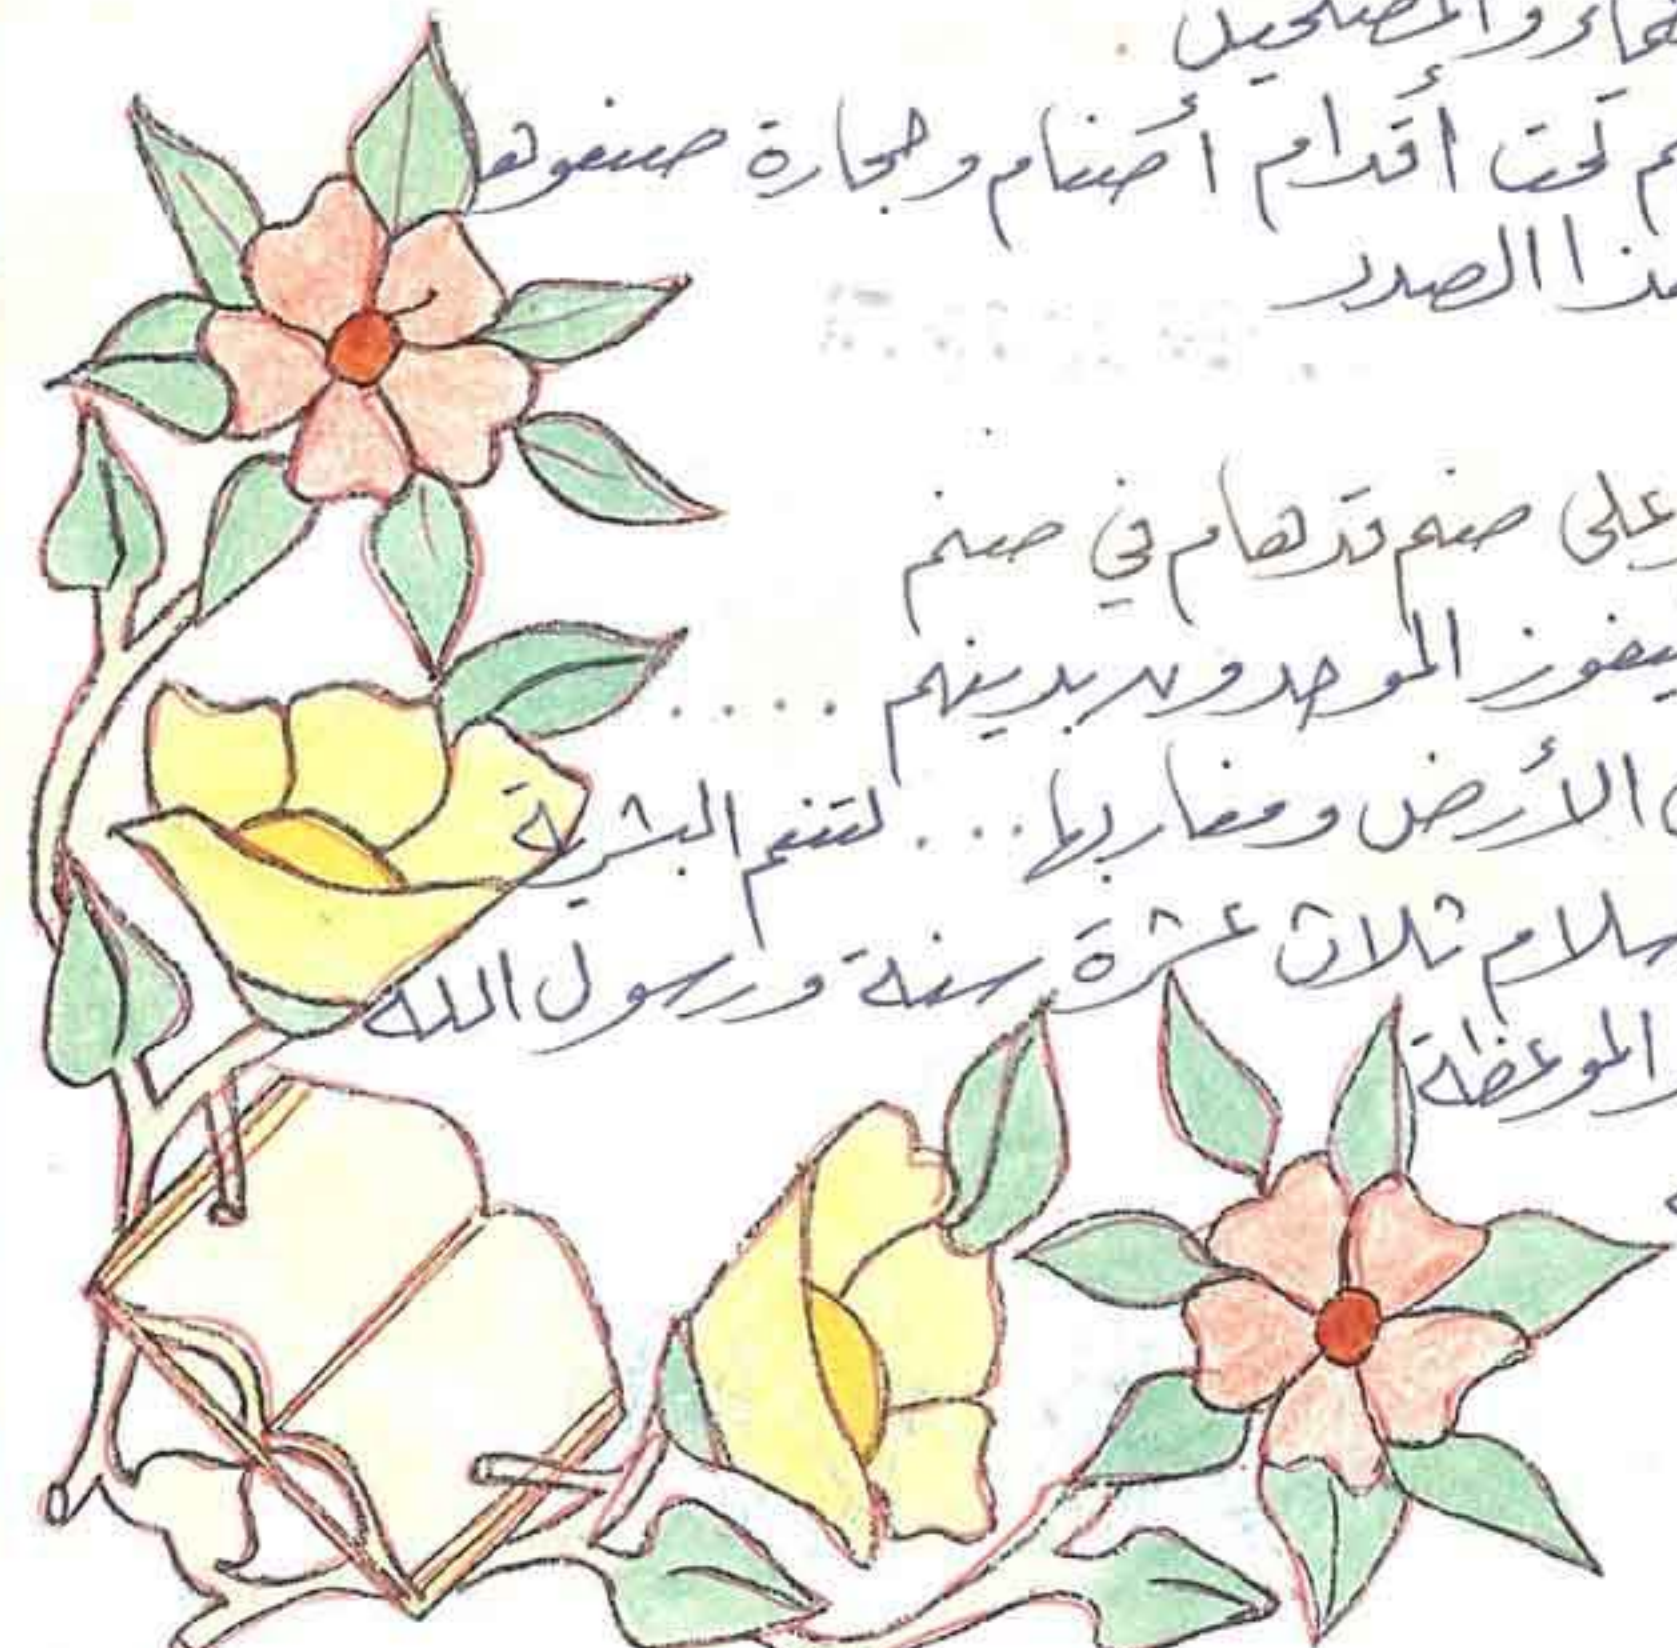 والمصلحين .
تحت أقدام أصنام وحجارة صنعوها
هذا الصدد
على صنم قد هام في صنم
الموحدون بدينهم .....
الأرض ومغاربها ... لتنعم البشرية
ثلاث عشرة سنة ورسول الله
الموعظة